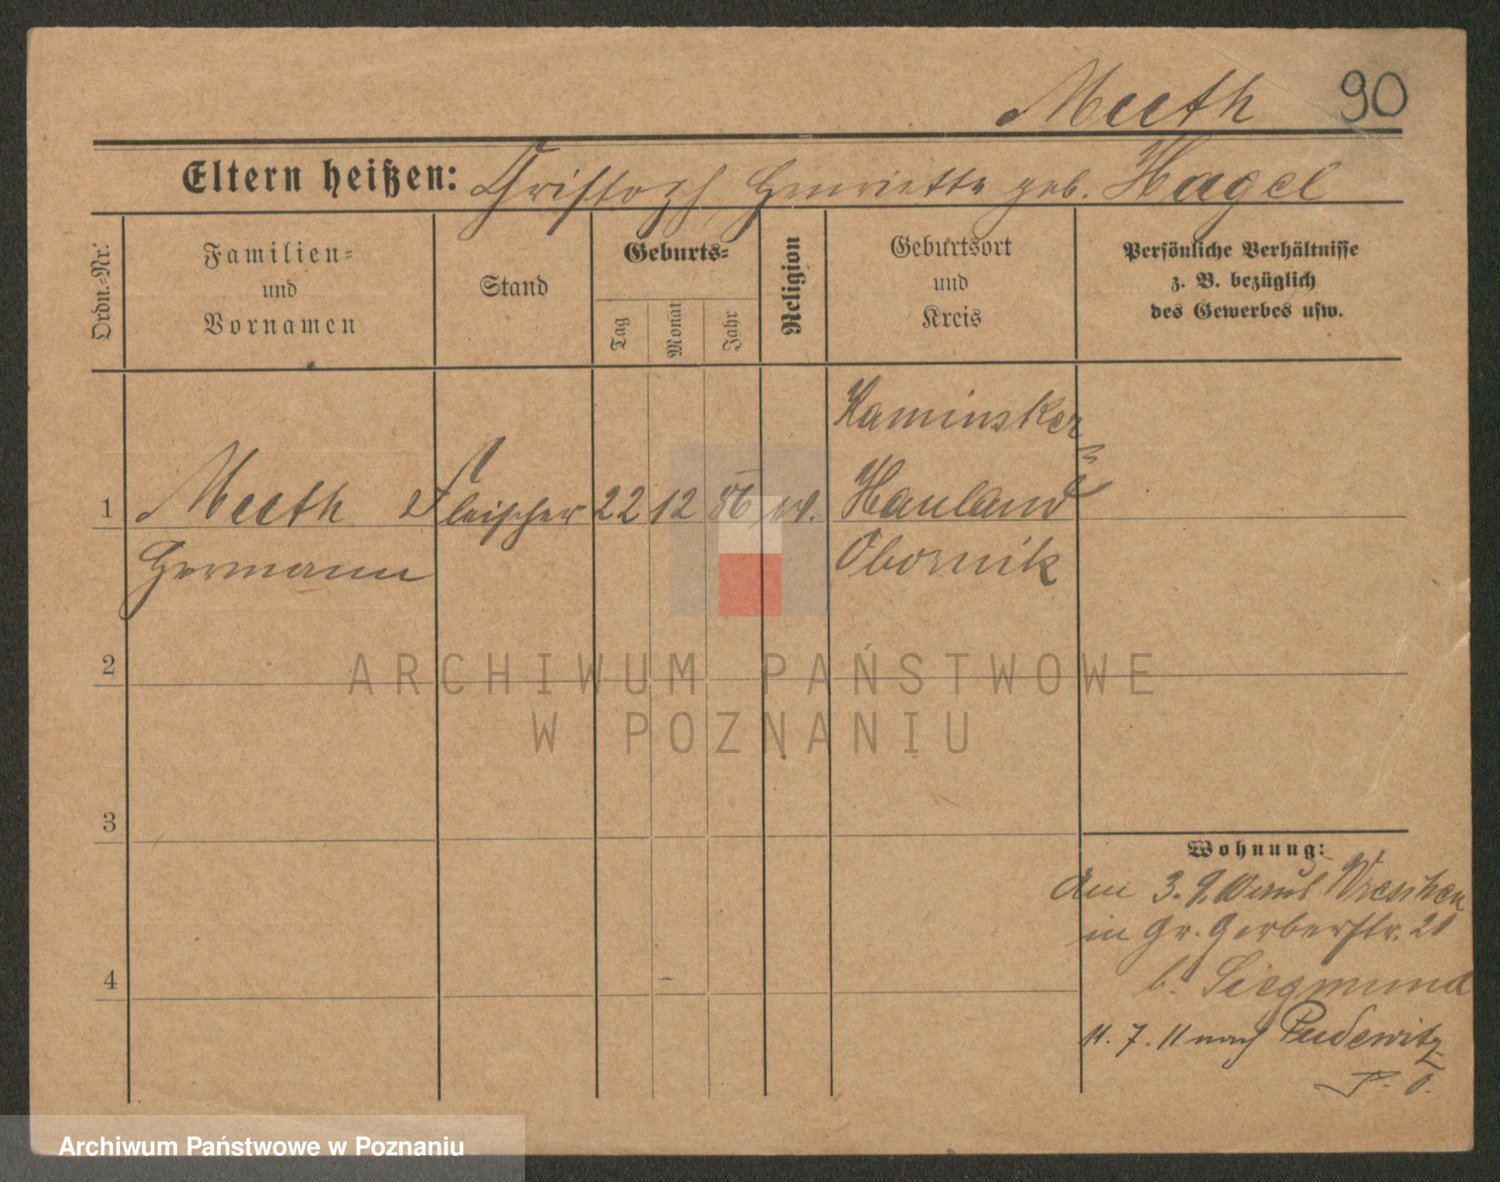 Meeth 90
Eltern heißen: Christoph, Henriette geb. Hagel
Ordn.-Nr.
Familien-
und
Vornamen
Stand
Geburts-
Tag
Monat
Jahr
Religion
Geburtsort
und
Kreis
Persönliche Verhältnisse
z. B. bezüglich
des Gewerbes usw.
Kaminsker
1 Meeth Fleischer 22 12 86 ev. Hauland
Hermann Obornik
2
ARCHIWUM PAŃSTWOWE
W POZNANIU
3
Wohnung:
Am 3. 9. 10 aus Wreschen
in Gr. Gerberstr. 21
4
b. Siegmund
11. 7. 11 nach Pudewitz
Archiwum Państwowe w Poznaniu